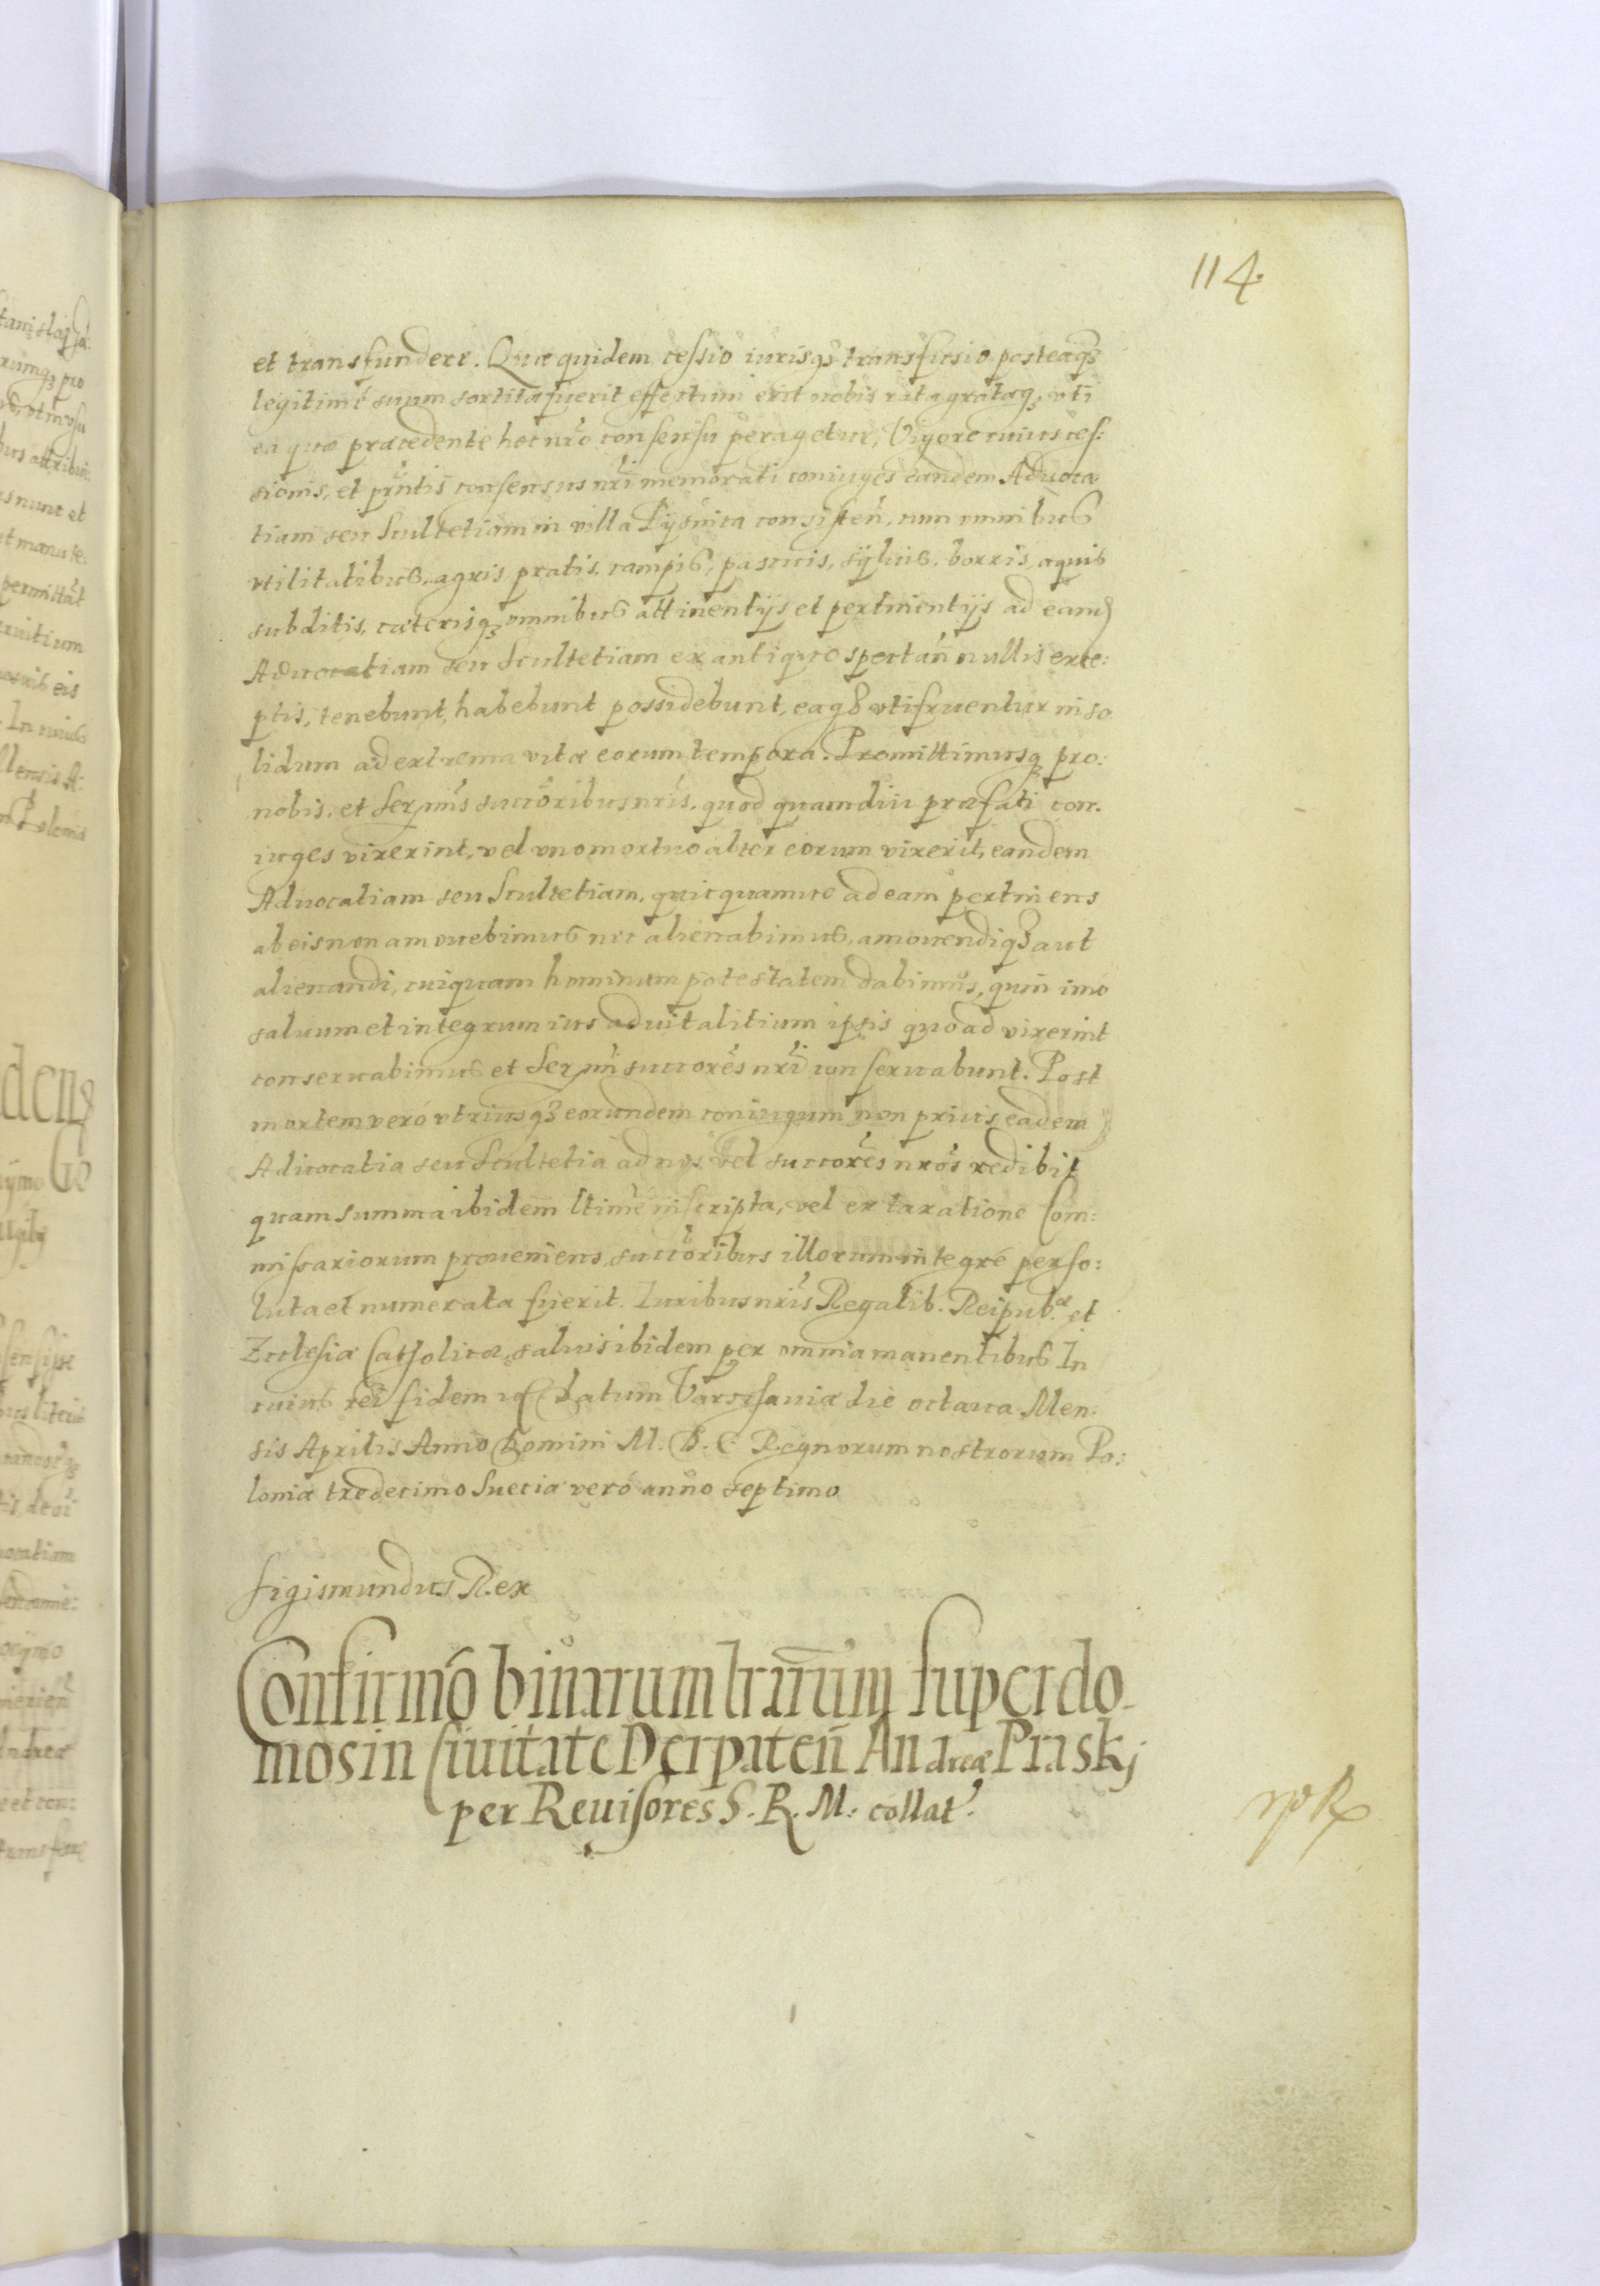 114.
et transfundere. Quæ quidem cessio iurisq3 transfusio posteaq3
legitimé suum sortita fuerit effectum erit nobis rata grataq3 uti
ea quæ præcedente hoc nr̃o consensu peragetur, Vigore cuius ces:
sionis, et pr̃ntis consensus nr̃i memorati coniuges eandem Aduoca
tiam seu Scultetiam in villa Pysnica consisteñ, cum omnibus
vtilitatibus, agris, pratis, campis, pascuis, syluis, borris, aquis
subditis, cæterisq3 omnibus attinentijs et pertinentijs ad eand
Aduocatiam seu Scultetiam ex antiquo spectañ nullis exce:
ptis, tenebunt, habebunt possidebunt, eaq3 vtifruentur in so
lidum ad extrema vitæ eorum tempora. Promittimusq3 pro:
nobis, et Ser̃mis succ̃oribus nr̃is, quod quamdiu præfati con.
iuges vixerint, vel vno mortuo alter eorum vixerit, eandem
Aduocatiam seu Scultetiam, quicquamue ad eam pertinens
ab eis non amouebimus nec alienabimus, amouendiq3 aut
alienandi, cuiquam hominum potestatem dabimus, quin imo
saluum et integrum ius aduitalitium ipsis quoad vixerint
conseruabimus et Ser̃mi succores nr̃i conseruabunt. Post
mortem veró vtriusq3 eorundem coniugum non prius eadem
Aduocatia seu Scultetia ad nos vel succores nr̃os redibit
quam summa ibidem ltimé inscripta, vel ex taxatione Com:
missariorum proueniens, succ̃oribus illorum integré perso:
luta et numerata fuerit. Iuribus nr̃is Regalib. Reipub.æ et
Ecclesiæ Catholicæ, saluis ibidem per omnia manentibus In
cuius rei fidem Datum Varssauiæ die octaua Men:
sis Aprilis Anno Domini M. D. C. Regnorum nostrorum Po:
loniæ tredecimo Sueciæ veró anno septimo
Sigismundus Rex
Confirmõ binarum lrãrum super do-
mos in Ciuitate Derpateñ Andreæ Praskj
per Reuisores S. R. M: collat.